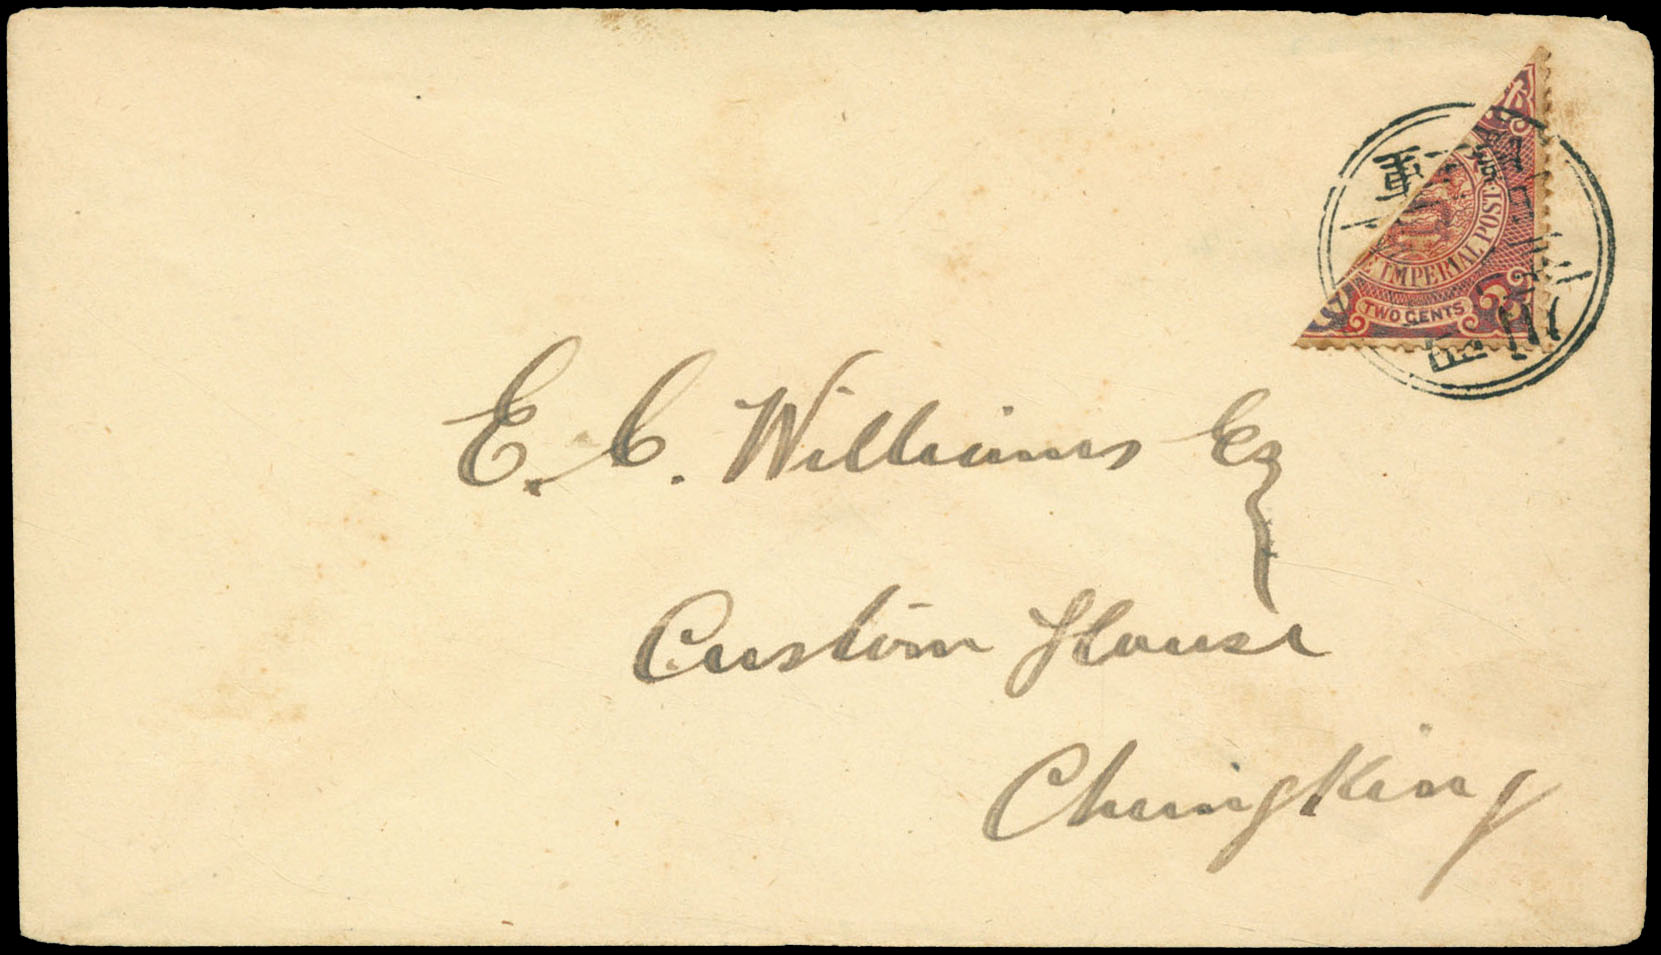 IMPERIAL POST
TWO CENTS
2
E. C. Williams Esq
Custom House
Chungking